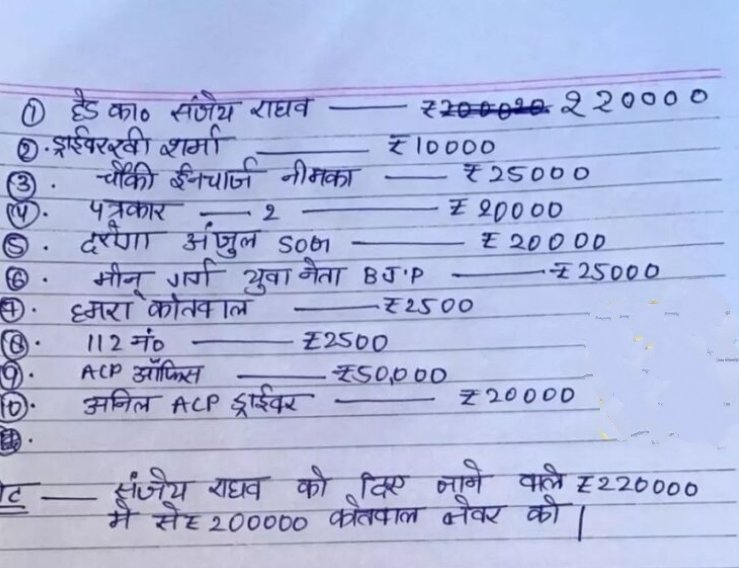 ① हेड का० संजय राघव — ₹200020 220000
②. ड्राईवर रवी शर्मा — ₹10000
③. चौकी ईनचार्ज नीमका — ₹25000
④. पत्रकार — 2 — ₹20000
⑤. दरोगा अंजुल SOG — ₹20000
⑥. मीनू गर्ग युवा नेता BJP — ₹25000
⑦. हमरा कोतवाल — ₹2500
⑧. 112 नं० — ₹2500
⑨. ACP ऑफिस — ₹50,000
⑩. अनिल ACP ड्राईवर — ₹20000
— संजय राघव को दिए जाने वाले ₹220000
मे से ₹200000 कोतवाल जेवर को |